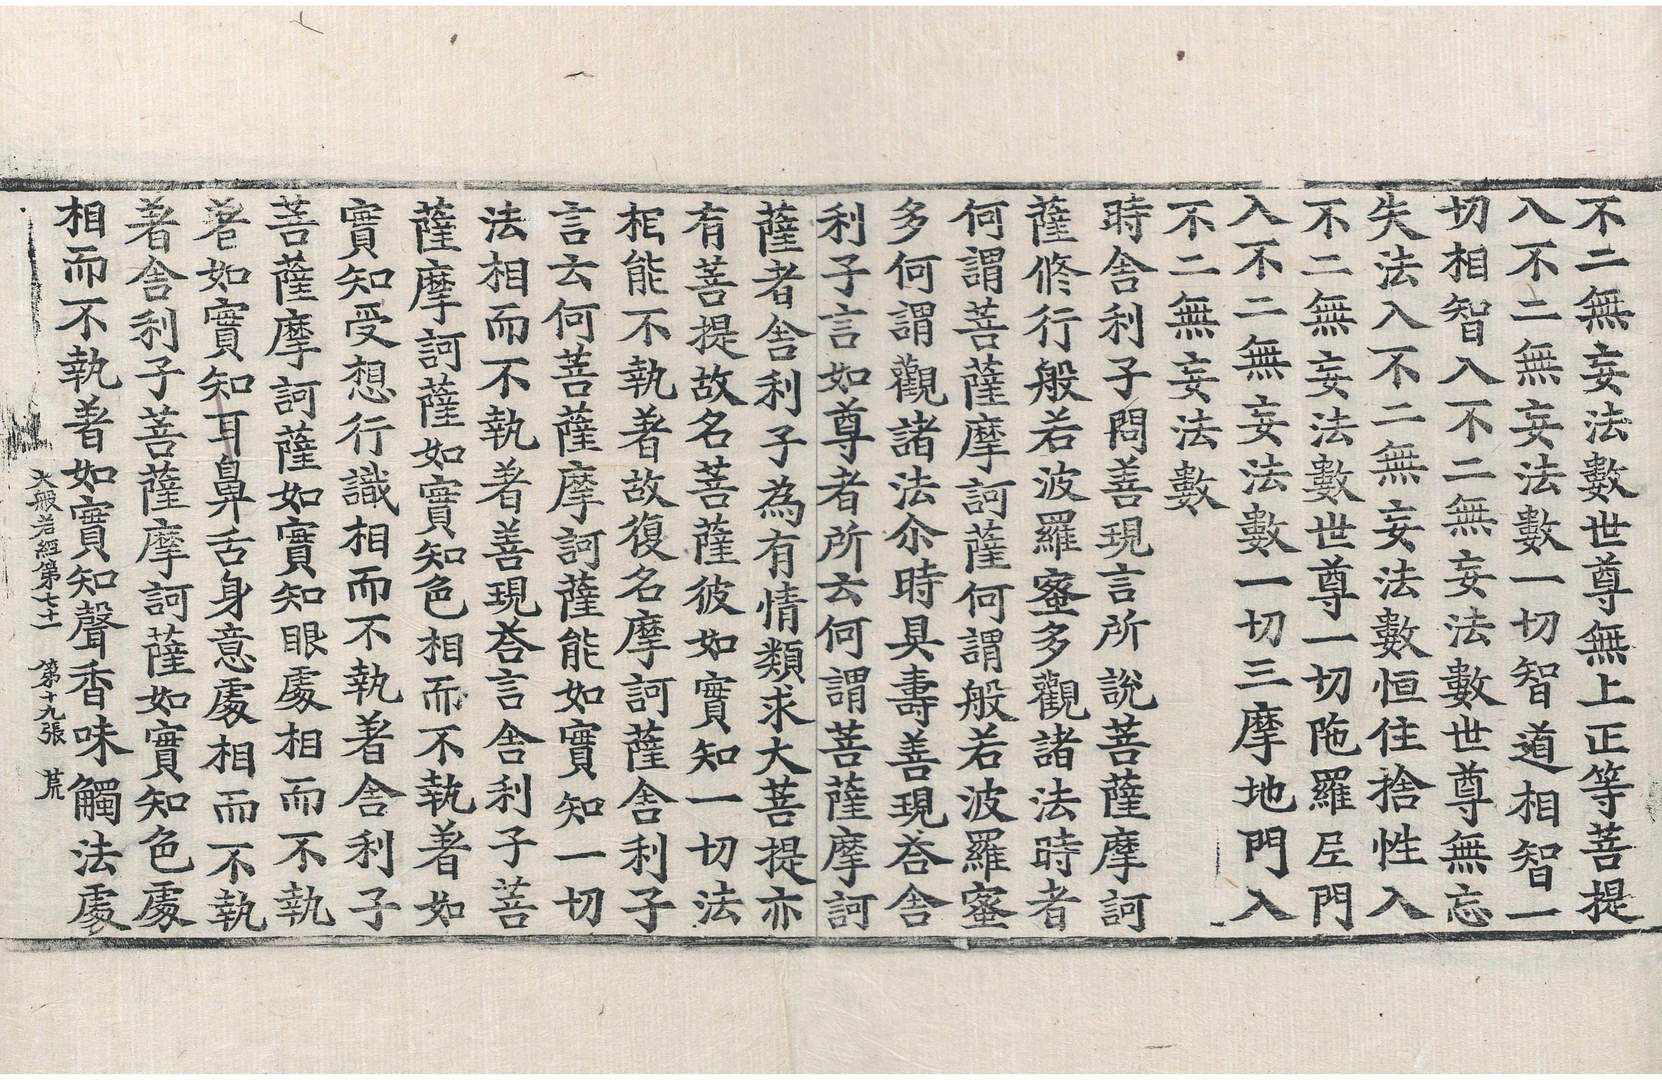 不二無妄法數世尊無上正等菩提
入不二無妄法數一切智道相智一
切相智入不二無妄法數世尊無忘
失法入不二無妄法數恒住捨性入
不二無妄法數世尊一切陁羅尼門
入不二無妄法數一切三摩地門入
不二無妄法數
時舍利子問善現言所說菩薩摩訶
薩修行般若波羅蜜多觀諸法時者
何謂菩薩摩訶薩何謂般若波羅蜜
多何謂觀諸法尒時具壽善現荅舍
利子言如尊者所云何謂菩薩摩訶
薩者舍利子為有情類求大菩提亦
有菩提故名菩薩彼如實知一切法
相能不執著故復名摩訶薩舍利子
言云何菩薩摩訶薩能如實知一切
法相而不執著善現荅言舍利子菩
薩摩訶薩如實知色相而不執著如
實知受想行識相而不執著舍利子
菩薩摩訶薩如實知眼處相而不執
著如實知耳鼻舌身意處相而不執
著舍利子菩薩摩訶薩如實知色處
相而不執著如實知聲香味觸法處
大般若經第七十一 第十九張 荒